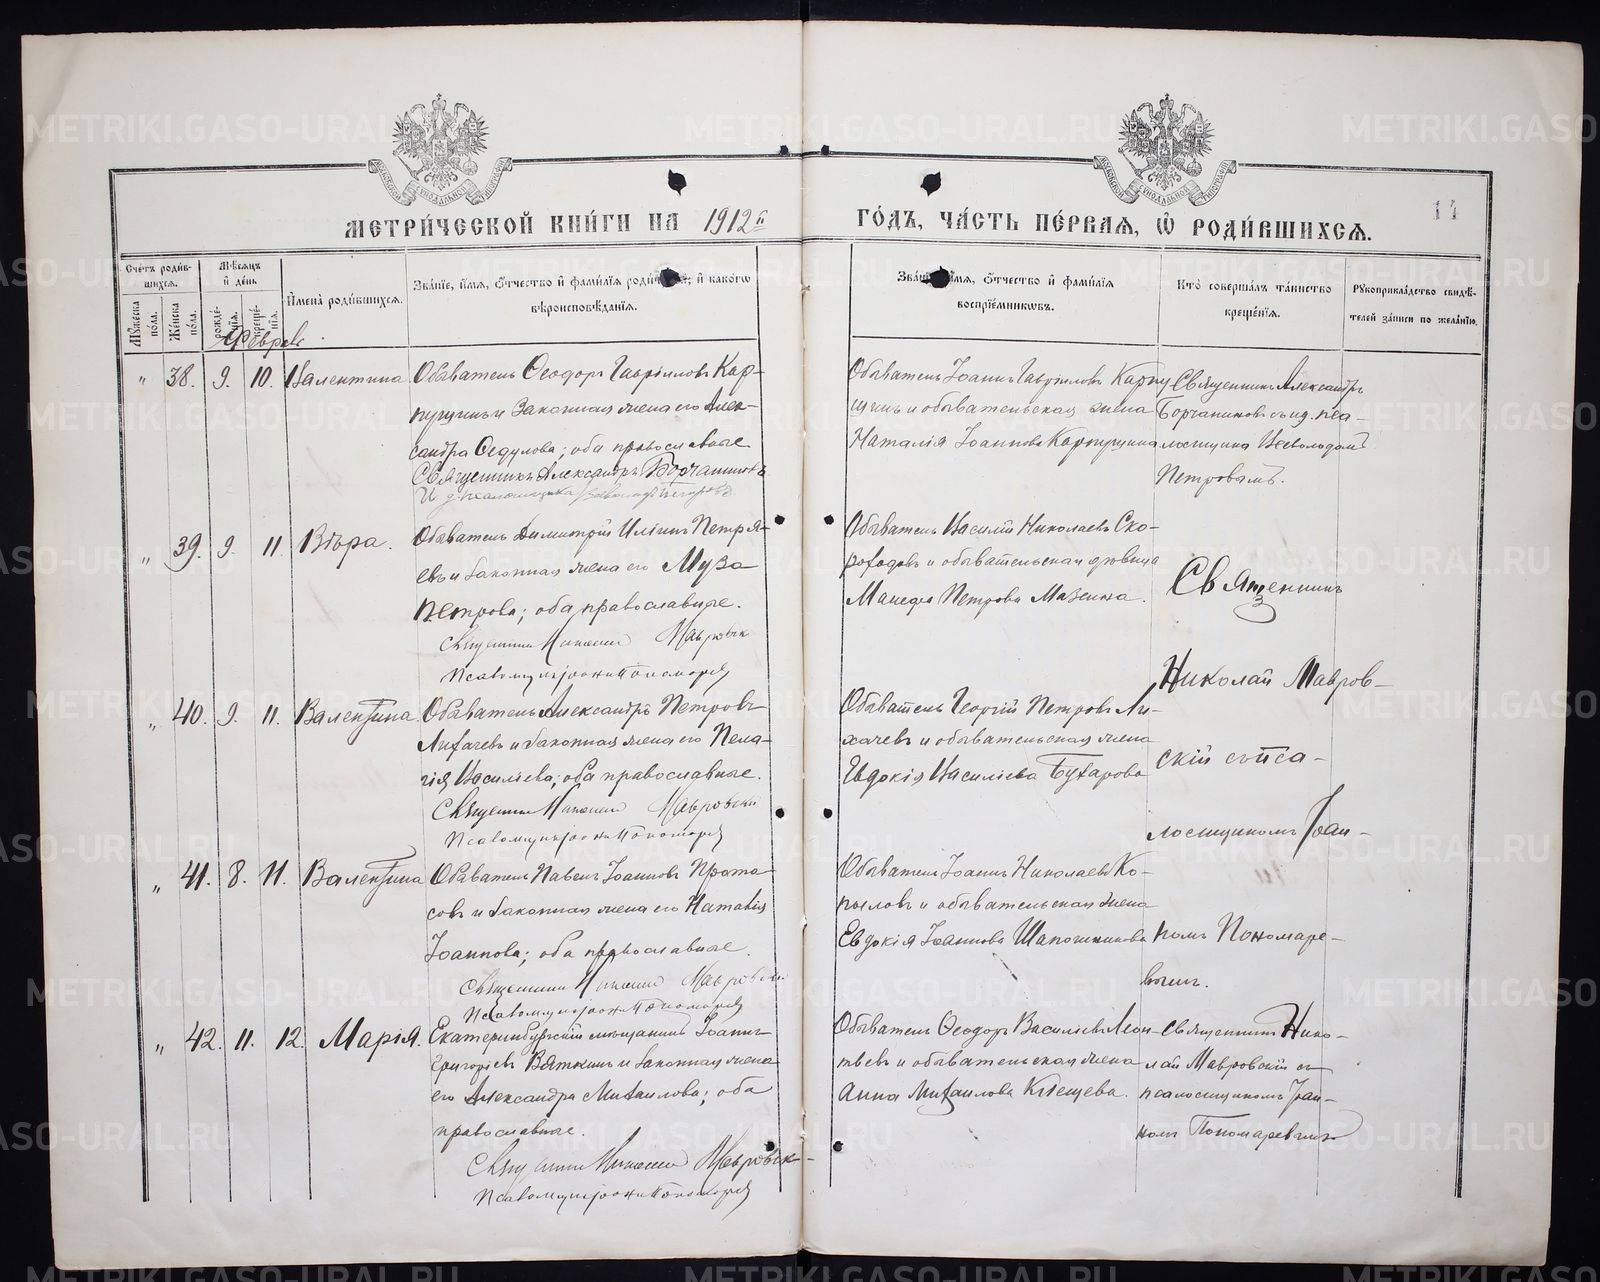 МЕТРИ́ЧЕСКОЙ КНИ́ГИ НА 1912й
ГО́ДЪ, ЧА́СТЬ ПЕ́РВАЯ, Ѽ РОДИ́ВШИХСѦ.
14
Сче́тъ роди́в-
шихсѧ.
Мꙋ́жеска по́ла.
Же́нска по́ла.
Мѣ́сѧцъ и҆ де́нь
рожде́нїѧ.
креще́нїѧ.
И҆мена̀ роди́вшихсѧ.
Зва́нїе, и҆́мѧ, ѻ҆́тчество и҆ фами́лїѧ и҆ како́гѡ
вѣроисповѣ́данїѧ.
и҆́мѧ, ѻ҆́тчество и҆ фами́лїѧ
воспрїе́мникѡвъ.
Кто̀ соверша́лъ та́инство
креще́нїѧ.
Рꙋкоприкла́дство свидѣ́-
телей за́писи по жела́нїю.
Февраль
" 38. 9. 10. Валентина
Обыватель Ѳеодоръ Гавріиловъ Кар-
пущинъ и законная жена его Алек-
сандра Седулова; оба православные
Священникъ Александръ
И. д. псаломщика Всеволодъ Петровъ
Обыватель Іоаннъ Гавріиловъ Карпу
щинъ и обывательская жена
Наталія Іоаннова Карпущина
Священникъ Александръ
съ и.д. пса-
ломщика Всеволодомъ
Петровымъ.
" 39. 9. 11. Вѣра.
Обыватель Димитрій Иліинъ Петря-
евъ и законная жена его Муза
Петрова; оба православные.
Священникъ Николай Мавровск
Псаломщикъ Іоаннъ Пономаревъ
Обыватель Василій Николаевъ Ско-
роходовъ и обывательская дѣвица
Петрова Мазеина.
Священникъ
Николай Мавров-
скій съ пса-
ломщикомъ Іоан-
номъ Пономаре-
вымъ.
" 40. 9. 11. Валентина.
Обыватель Александръ Петровъ
Лихачевъ и законная жена его Пела-
гія Василіева; оба православные.
Священникъ Николай Мавровскій
Псаломщикъ Іоаннъ Пономаревъ
Обыватель Георгій Петровъ Ли-
хачевъ и обывательская жена
Евдокія Василіева Бухарова
" 41. 8. 11. Валентина
Обыватель Павелъ Іоанновъ Прота-
совъ и законная жена его Наталія
Іоаннова; оба православные.
Священникъ Николай Мавровскій
Псаломщикъ Іоаннъ Пономаревъ
Обыватель Іоаннъ Николаевъ Ко-
пыловъ и обывательская жена
Евдокія Іоаннова Шапошникова
" 42. 11. 12. Марія.
Екатеринбургскій мѣщанинъ Іоаннъ
Григоріевъ Вяткинъ и законная жена
его Александра Михаилова; оба
православные.
Священникъ Николай Мавровск
Псаломщикъ Іоаннъ Пономаревъ
Обыватель Ѳеодоръ Василіевъ Леон-
тьевъ и обывательская жена
Анна Михаилова Клещева.
Священникъ Нико-
лай Мавровскій съ
псаломщикомъ Іоан-
номъ Пономаревымъ
METRIKI.GASO-URAL.RU